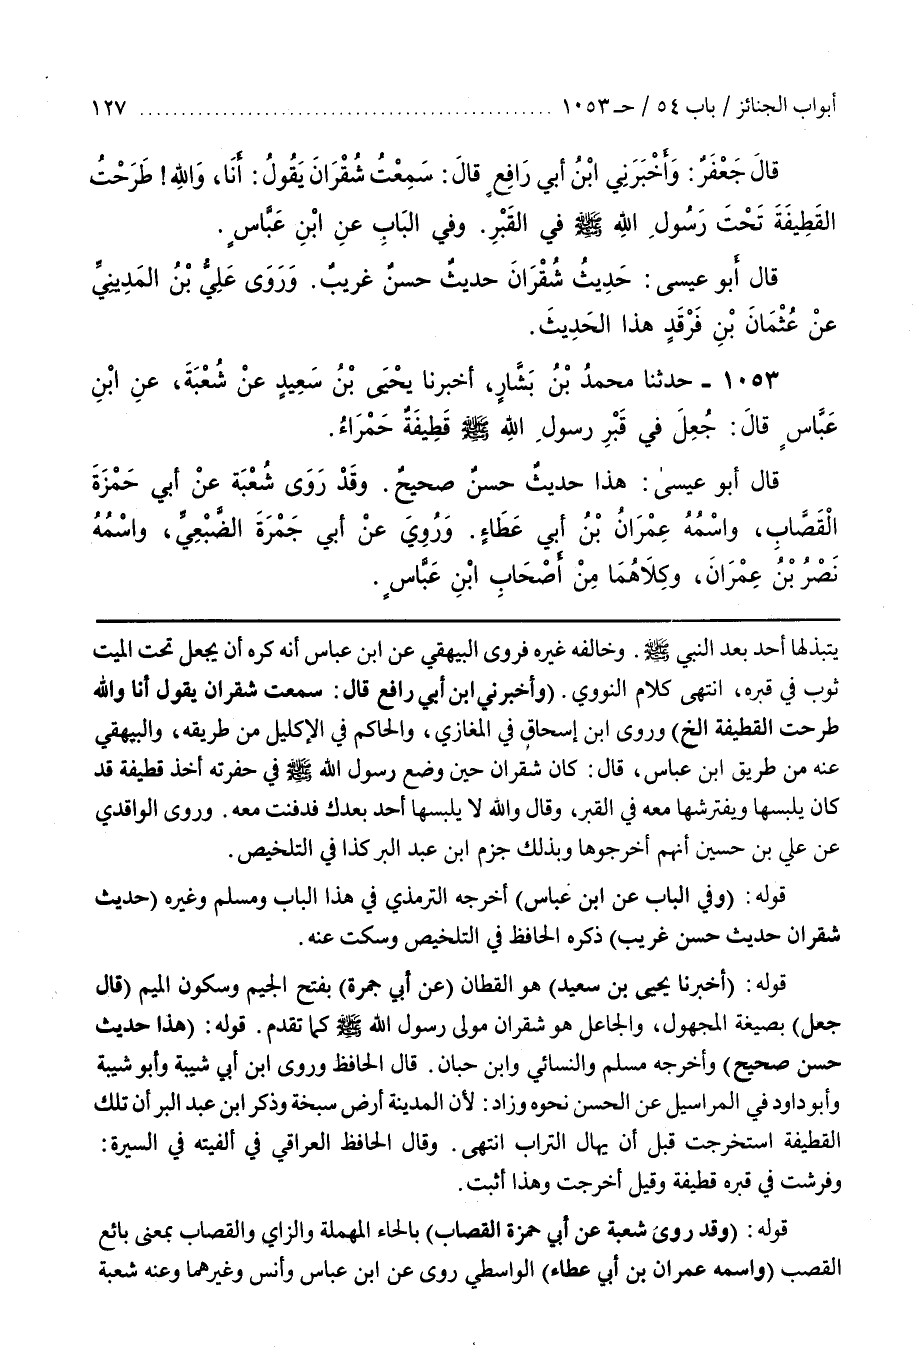 أبواب الجنائز / باب ٥٤ / حـ ١٠٥٣ ................................................ ١٢٧
قالَ جَعْفَرٌ: وَأَخْبَرَنِي ابْنُ أبي رَافِعٍ قالَ: سَمِعْتُ شُقْرَانَ يَقُولُ: أَنَا، وَاللهِ! طَرَحْتُ
القَطِيفَةَ تَحْتَ رَسُولِ اللهِ ﷺ في القَبْرِ. وفي البَابِ عنِ ابْنِ عَبَّاسٍ.
قال أَبو عيسى: حَدِيثُ شُقْرَانَ حديثٌ حسنٌ غريبٌ. وَرَوَى عَلِيُّ بْنُ المَدِينِيِّ
عنْ عُثْمَانَ بْنِ فَرْقَدٍ هذا الحَدِيثَ.
١٠٥٣ ـ حدثنا محمدُ بْنُ بَشَّارٍ، أخبرنا يحْيَى بْنُ سَعِيدٍ عنْ شُعْبَةَ، عنِ ابْنِ
عَبَّاسٍ قالَ: جُعِلَ في قَبْرِ رسولِ اللهِ ﷺ قَطِيفَةٌ حَمْرَاءُ.
قال أبو عيسىٰ: هذا حديثٌ حسنٌ صحيحٌ. وقَدْ رَوَى شُعْبَة عنْ أبي حَمْزَةَ
الْقَصَّابِ، واسْمُهُ عِمْرَانُ بْنُ أبي عَطَاءٍ. وَرُوِيَ عنْ أبي جَمْرَةَ الضُّبْعِيِّ، واسْمُهُ
نَصْرُ بْنُ عِمْرَانَ، وكِلَاهُمَا مِنْ أَصْحَابِ ابْنِ عَبَّاسٍ.
يتبذلها أحد بعد النبي ﷺ. وخالفه غيره فروى البيهقي عن ابن عباس أنه كره أن يجعل تحت الميت
ثوب في قبره، انتهى كلام النووي. (وأخبرني ابن أبي رافع قال: سمعت شقران يقول أنا والله
طرحت القطيفة الخ) وروى ابن إسحاق في المغازي، والحاكم في الإكليل من طريقه، والبيهقي
عنه من طريق ابن عباس، قال: كان شقران حين وضع رسول الله ﷺ في حفرته أخذ قطيفة قد
كان يلبسها ويفترشها معه في القبر، وقال والله لا يلبسها أحد بعدك فدفنت معه. وروى الواقدي
عن علي بن حسين أنهم أخرجوها وبذلك جزم ابن عبد البر كذا في التلخيص.
قوله: (وفي الباب عن ابن عباس) أخرجه الترمذي في هذا الباب ومسلم وغيره (حديث
شقران حديث حسن غريب) ذكره الحافظ في التلخيص وسكت عنه.
قوله: (أخبرنا يحيى بن سعيد) هو القطان (عن أبي جمرة) بفتح الجيم وسكون الميم (قال
جعل) بصيغة المجهول، والجاعل هو شقران مولى رسول الله ﷺ كما تقدم. قوله: (هذا حديث
حسن صحيح) وأخرجه مسلم والنسائي وابن حبان. قال الحافظ وروى ابن أبي شيبة وأبو شيبة
وأبو داود في المراسيل عن الحسن نحوه وزاد: لأن المدينة أرض سبخة وذكر ابن عبد البر أن تلك
القطيفة استخرجت قبل أن يهال التراب انتهى. وقال الحافظ العراقي في ألفيته في السيرة:
وفرشت في قبره قطيفة وقيل أخرجت وهذا أثبت.
قوله: (وقد روىَ شعبة عن أبي حمزة القصاب) بالحاء المهملة والزاي والقصاب بمعنى بائع
القصب (واسمه عمران بن أبي عطاء) الواسطي روى عن ابن عباس وأنس وغيرهما وعنه شعبة